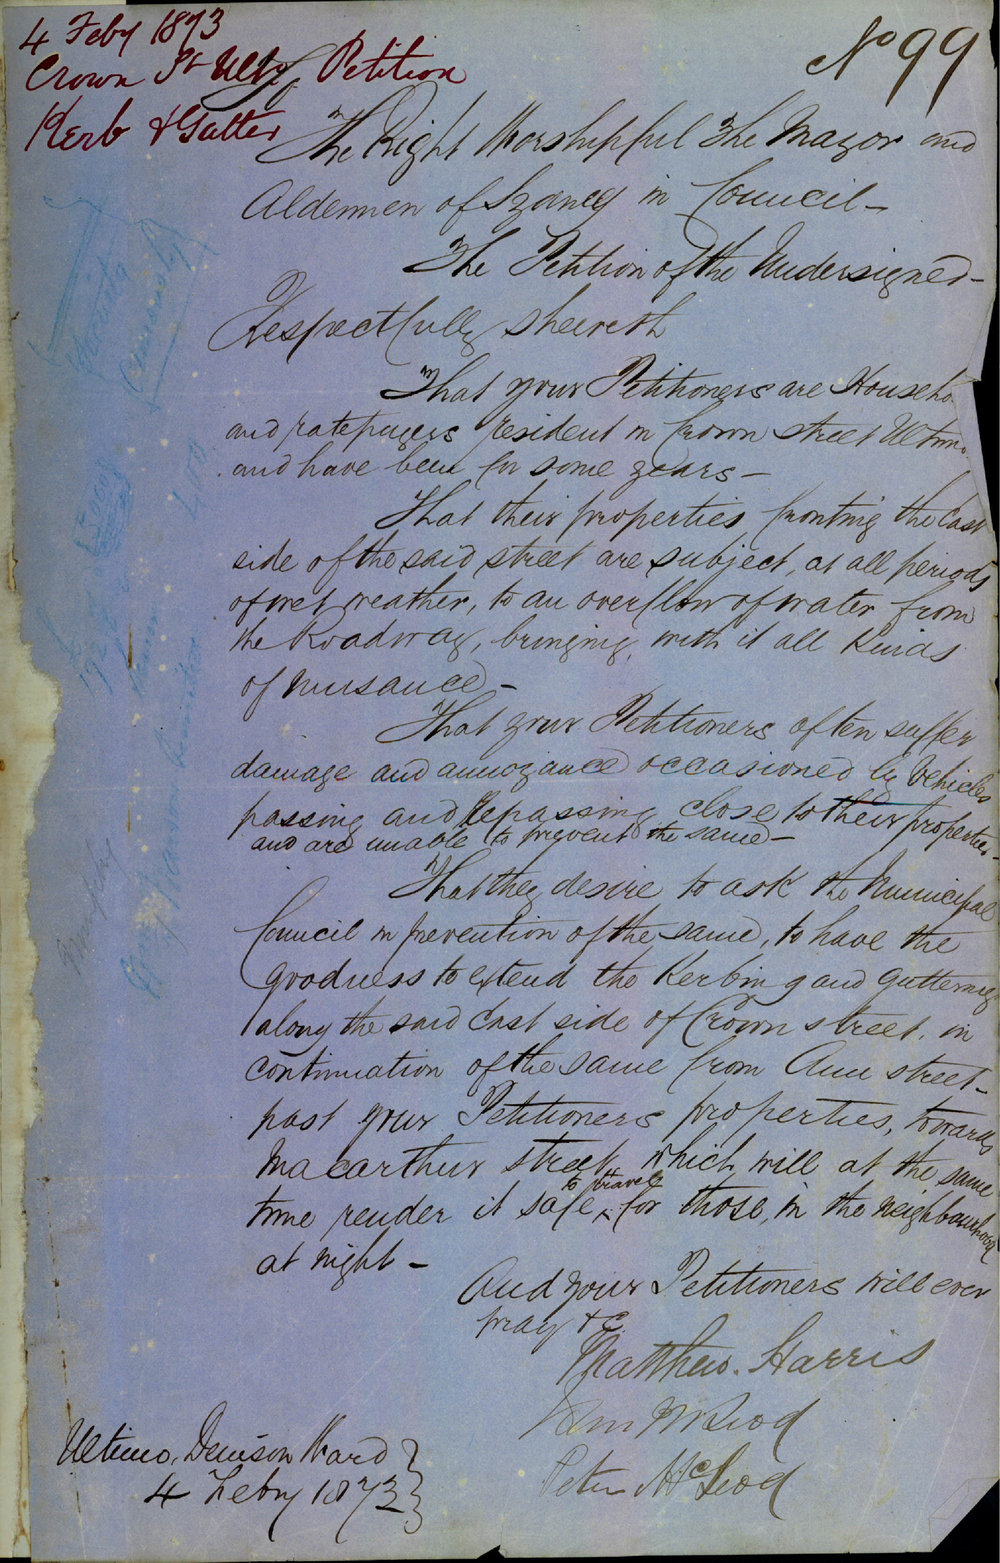 4 Feby 1873
Crown St Ulto Petition
Kerb & Gutter
No 99
To
The Right Worshipful The Mayor and
Aldermen of Sydney in Council -
The Petition of the Undersigned -
Respectfully sheweth
That your Petitioners are Househo
and ratepayers resident in Crown street Ultimo
and have been for some years -
That their properties fronting the East
side of the said street are subject, at all periods
of wet weather, to an overflow of water from
the Roadway, bringing with it all kinds
of nuisance -
That your Petitioners often suffer
damage and annoyance occasioned by Vehicles
passing and repassing close to their properties -
and are unable to prevent the same -
That they desire to ask the Municipal
Council in prevention of the same, to have the
goodness to extend the Kerbing and guttering
along the said East side of Crown street, in
continuation of the same from Ann street -
past your Petitioners properties, towards
Macarthur street, which will at the same
time render it safe to travel for those, in the neighbourhood
at night -
And your Petitioners will ever
pray &c
Matthew Harris
McLeod
Peter McLeod
Ultimo, Denison Ward
4 Feby 1873